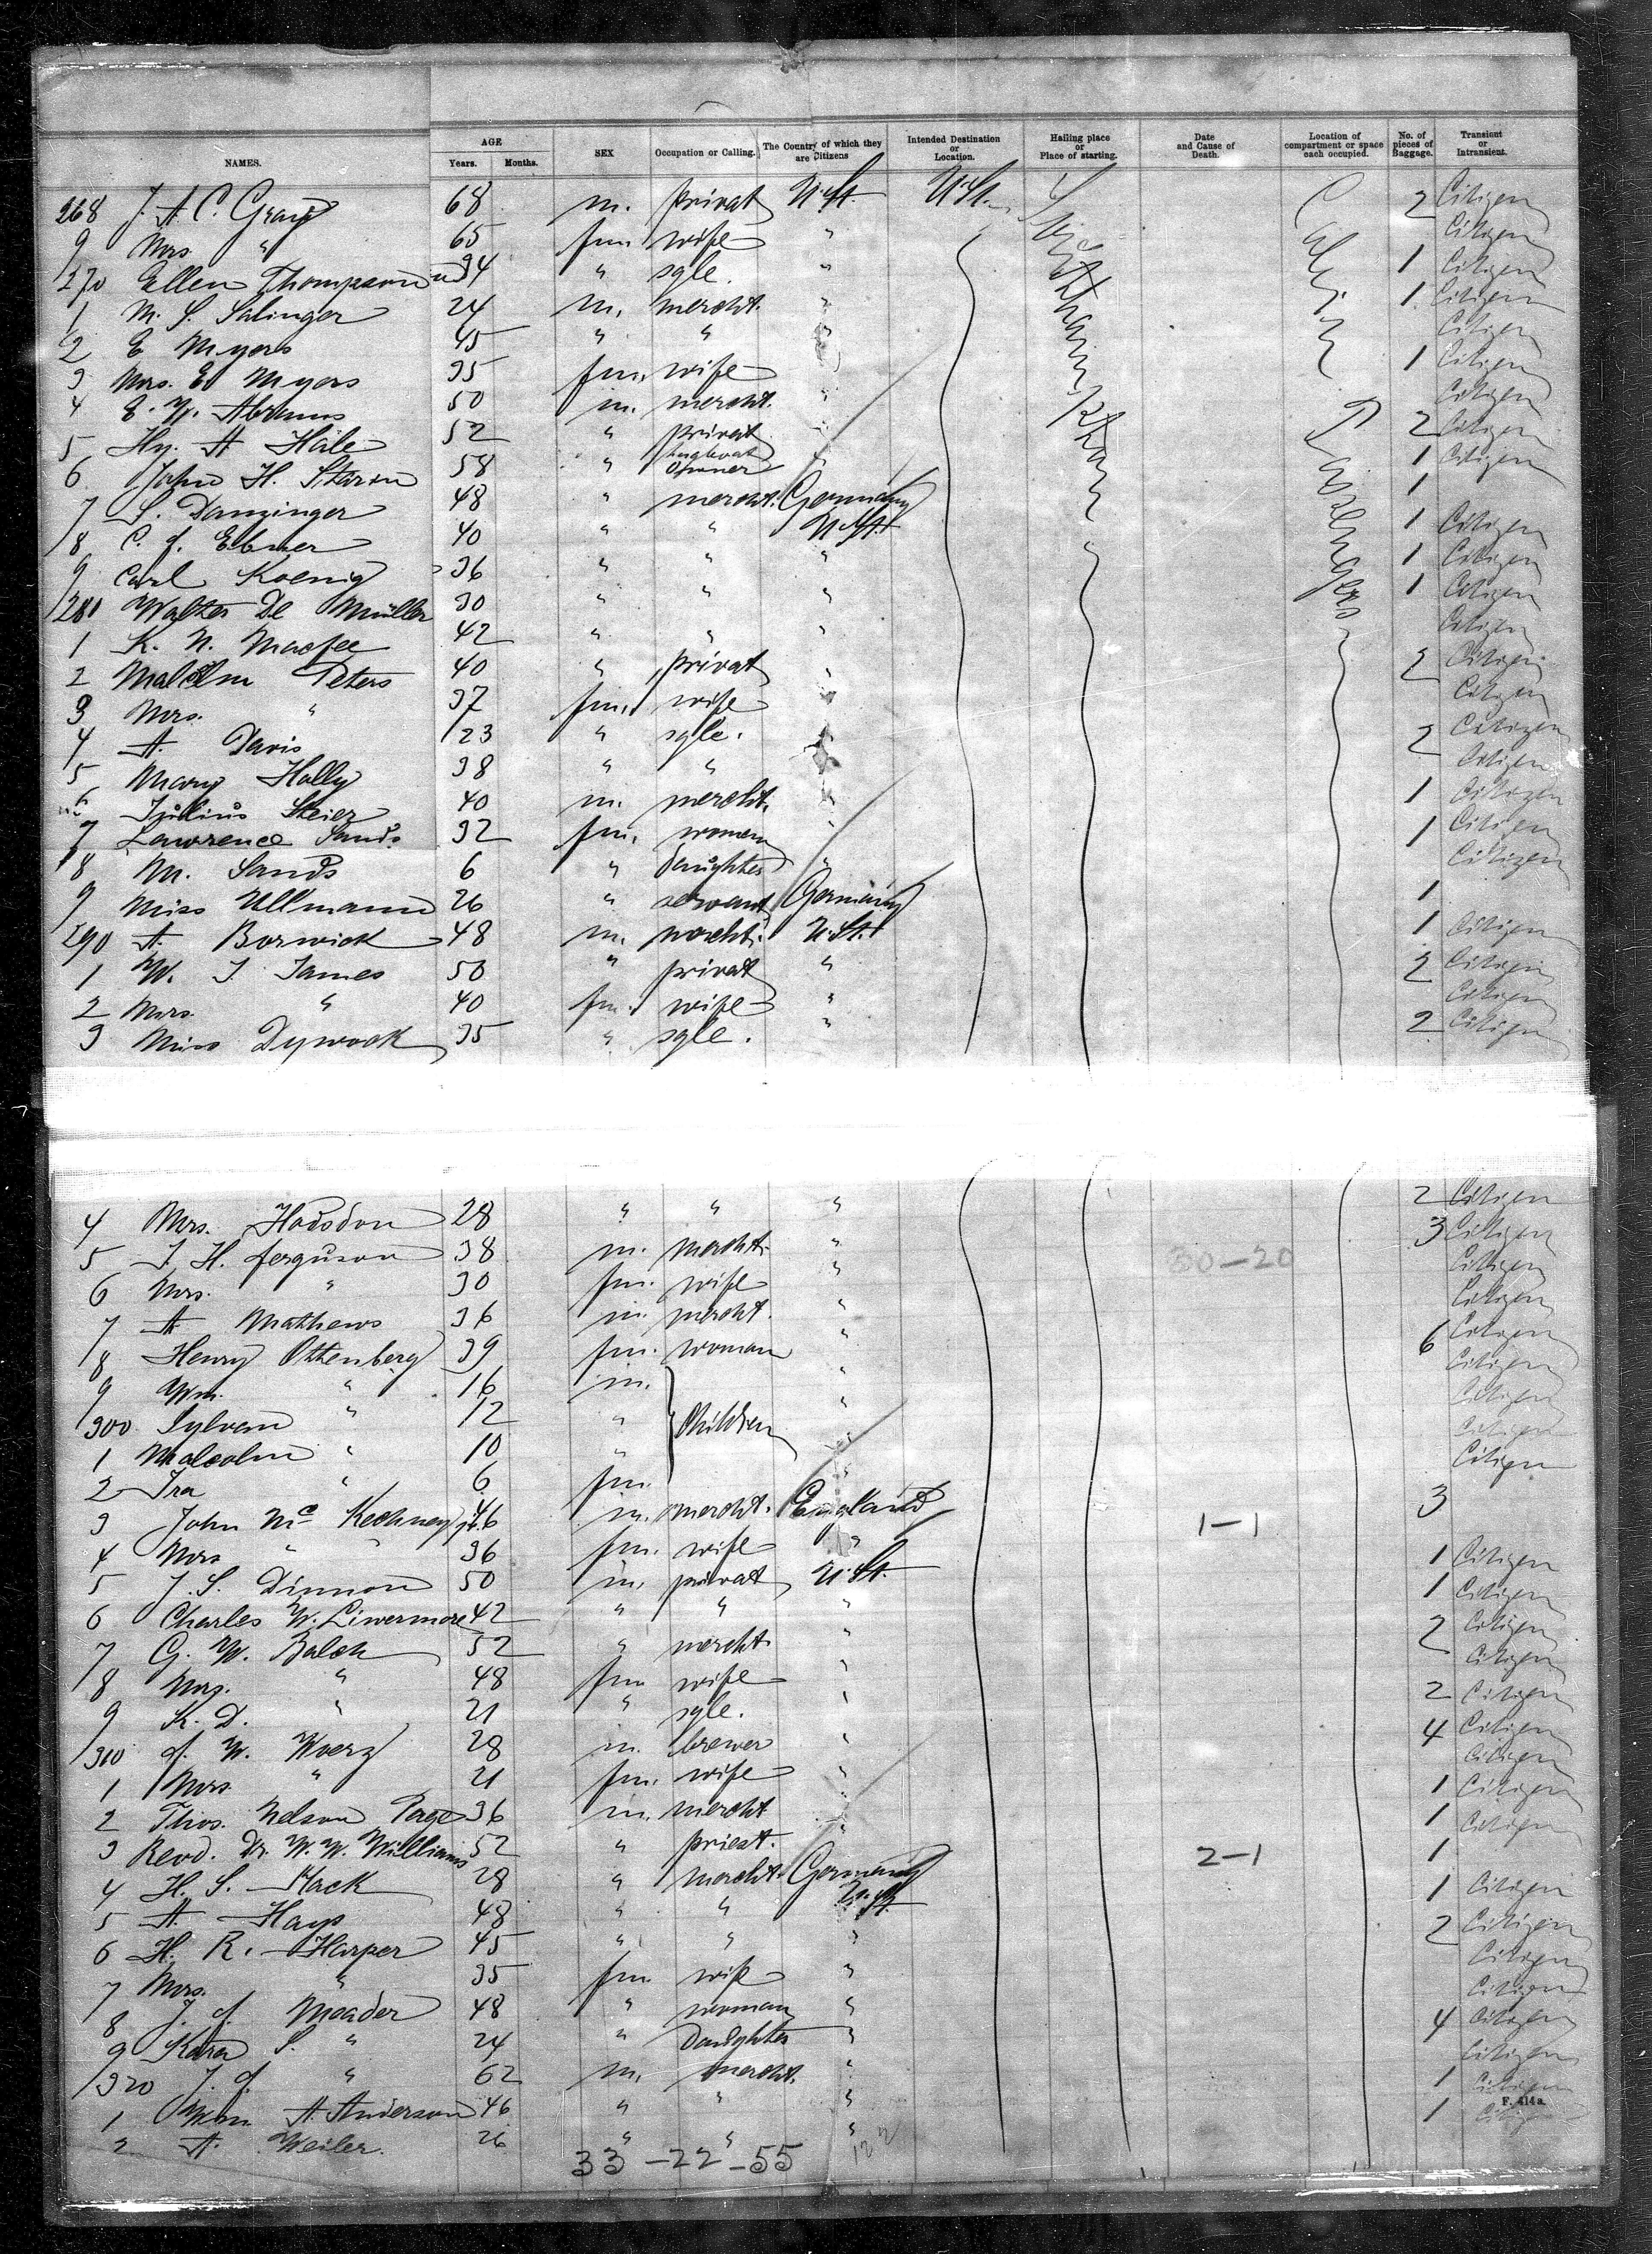 NAMES. AGE Years. Months. SEX Occupation or Calling. The Country of which they are Citizens Intended Destination or Location. Hailing place or Place of starting. Date and Cause of Death. Location of compartment or space each occupied. No. of pieces of Baggage. Transient or Intransient.
268 J. A. C. Gray 68 m. privat U.St. U.St. 2 Citizen
9 Mrs " 65 fm. wife " Citizen
270 Ellen Thompson 34 " sgle. " 1 Citizen
1 M. S. Salinger 24 m. mercht. " 1 Citizen
2 E Myers 45 " " " Citizen
3 Mrs. E Myers 35 fm. wife " 1 Citizen
4 E. W. Abrams 50 m. mercht. " Citizen
5 Hy. A Hale 52 " privat " 2 Citizen
6 John H. Starin 58 " owner " 1 Citizen
7 S. Danzinger 48 " mercht. Germany 1
8 C. J. Ebner 40 " " U.St. 1 Citizen
9 Carl Koenig 36 " " " 1 Citizen
280 Walter De Müller 30 " " " 1 Citizen
1 K. N. Macfee 42 " " " Citizen
2 Malcolm Peters 40 " privat " 2 Citizen
3 Mrs. " 37 fm. wife " Citizen
4 A. Davis 23 " sgle. " 2 Citizen
5 Mary Holly 38 " " " Citizen
6 Julius Steier 40 m. mercht. " 1 Citizen
7 Lawrence Sands 32 fm. woman " 1 Citizen
8 M. Sands 6 " daughter " Citizen
9 Miss Ullmann 26 " servant Germany 1
290 A. Borwick 48 m. mercht. U.St. 1 Citizen
1 W. J. James 50 " privat " 2 Citizen
2 Mrs. " 40 fm. wife " Citizen
3 Miss Dywook 35 " sgle. " 2 Citizen
4 Mrs. Hodsdon 28 " " " 2 Citizen
5 J. H. Ferguson 38 m. mercht. " 30-20 3 Citizen
6 Mrs. " 30 fm. wife " Citizen
7 A Mathews 36 m. mercht. " Citizen
8 Henry Ottenberg 39 fm. woman " 6 Citizen
9 Wm. " 16 m. " Citizen
300 Sylvan " 12 " Children " Citizen
1 Malcolm " 10 " " Citizen
2 Ira " 6 fm. " Citizen
3 John Mc Kechney jr. 46 m. mercht. England 1-1 3
4 Mrs " 36 fm. wife "
5 J. S. Dinnon 50 m. privat U.St. 1 Citizen
6 Charles W. Livermore 42 " " " 1 Citizen
7 G. W. Balch 52 " mercht. " 2 Citizen
8 Mrs. " 48 fm wife " Citizen
9 K. D. " 21 " sgle. " 2 Citizen
310 J. W. Woerz 28 m. brewer " 4 Citizen
1 Mrs " 21 fm. wife " Citizen
2 Thos. Nelson Page 36 m. mercht " 1 Citizen
3 Revd. Dr. W. W. Williams 52 " priest. " 1 Citizen
4 H. S. Mack 28 " mercht. Germany 2-1 1
5 A. Hays 48 " " U.St. 1 Citizen
6 H. R. Harper 45 " " " 2 Citizen
7 Mrs. " 35 fm wife " Citizen
8 J. J. Meader 48 " woman " Citizen
9 Kara S. " 24 " Daughter " 4 Citizen
320 J. J. " 62 m. mercht. " Citizen
1 Wm A. Anderson 46 " " " 1 Citizen
2 A. Weiler. 26 " " " 1 Citizen
F. 414a.
33-22-55 122